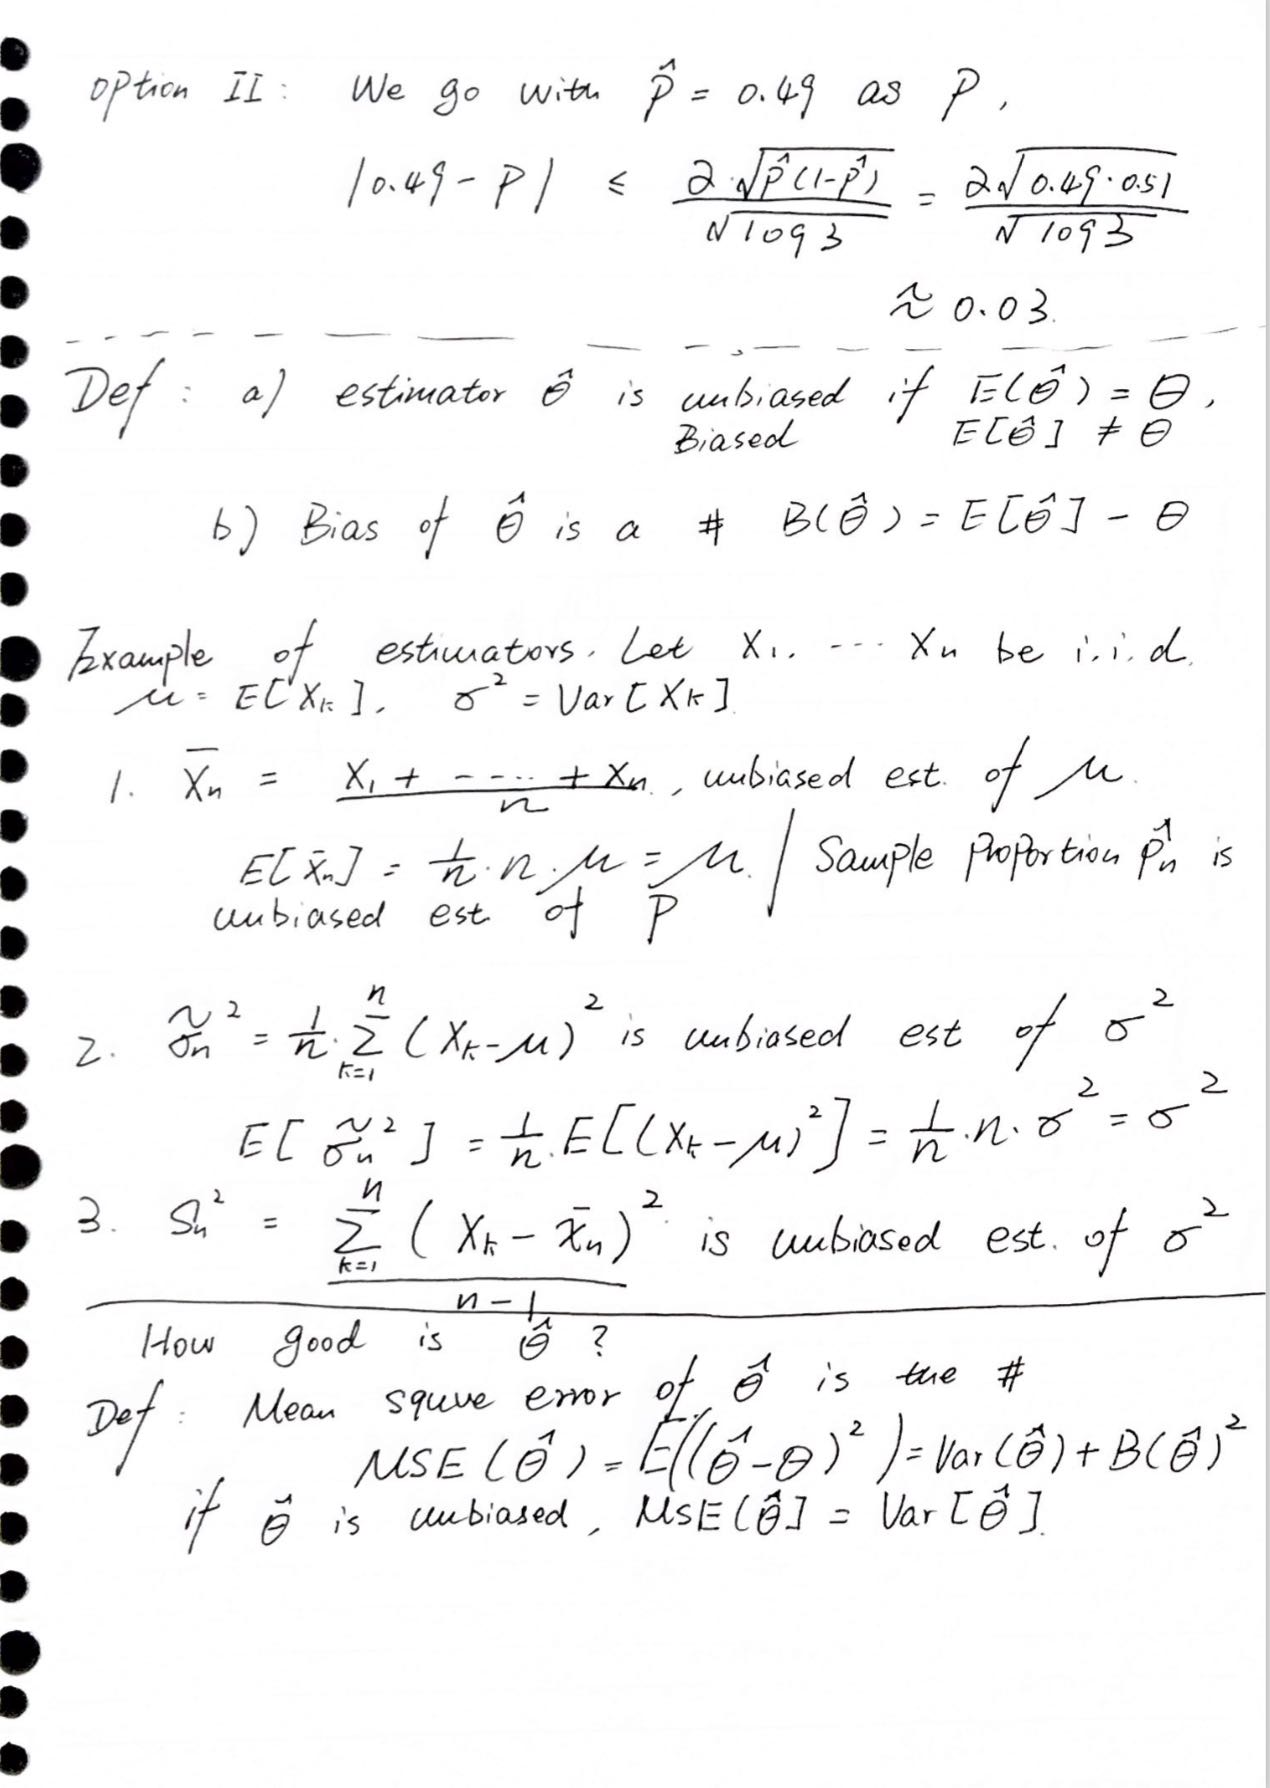 option II : We go with p̂ = 0.49 as P,
|0.49 - P| ≤ 2·√p̂(1-p̂) / √1093 = 2√0.49·0.51 / √1093
≈ 0.03.
Def : a) estimator θ̂ is unbiased if E(θ̂) = θ,
Biased E[θ̂] ≠ θ
b) Bias of θ̂ is a # B(θ̂) = E[θ̂] - θ
Example of estimators. Let X₁, ---- Xn be i.i.d.
μ = E[Xk], σ² = Var[Xk]
1. X̄n = X₁ + ----- + Xn / n, unbiased est. of μ.
E[x̄n] = 1/n · n · μ = μ. / Sample Proportion p̂n is
unbiased est. of P
2. σ̃n² = 1/n · Σ_{k=1}^{n} (Xk - μ)² is unbiased est of σ²
E[σ̃n²] = 1/n · E[(Xk - μ)²] = 1/n · n · σ² = σ²
3. Sn² = Σ_{k=1}^{n} (Xk - x̄n)² / n-1 is unbiased est. of σ²
How good is θ̂ ?
Def : Mean squve error of θ̂ is the #
MSE(θ̂) = E((θ̂ - θ)²) = Var(θ̂) + B(θ̂)²
if θ̂ is unbiased, MSE(θ̂] = Var[θ̂].